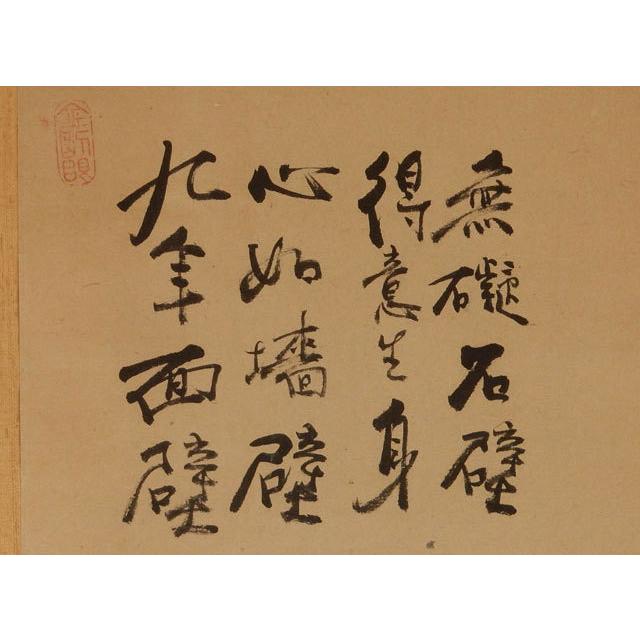 九年面壁
心如墻壁
得意生身
無礙石壁